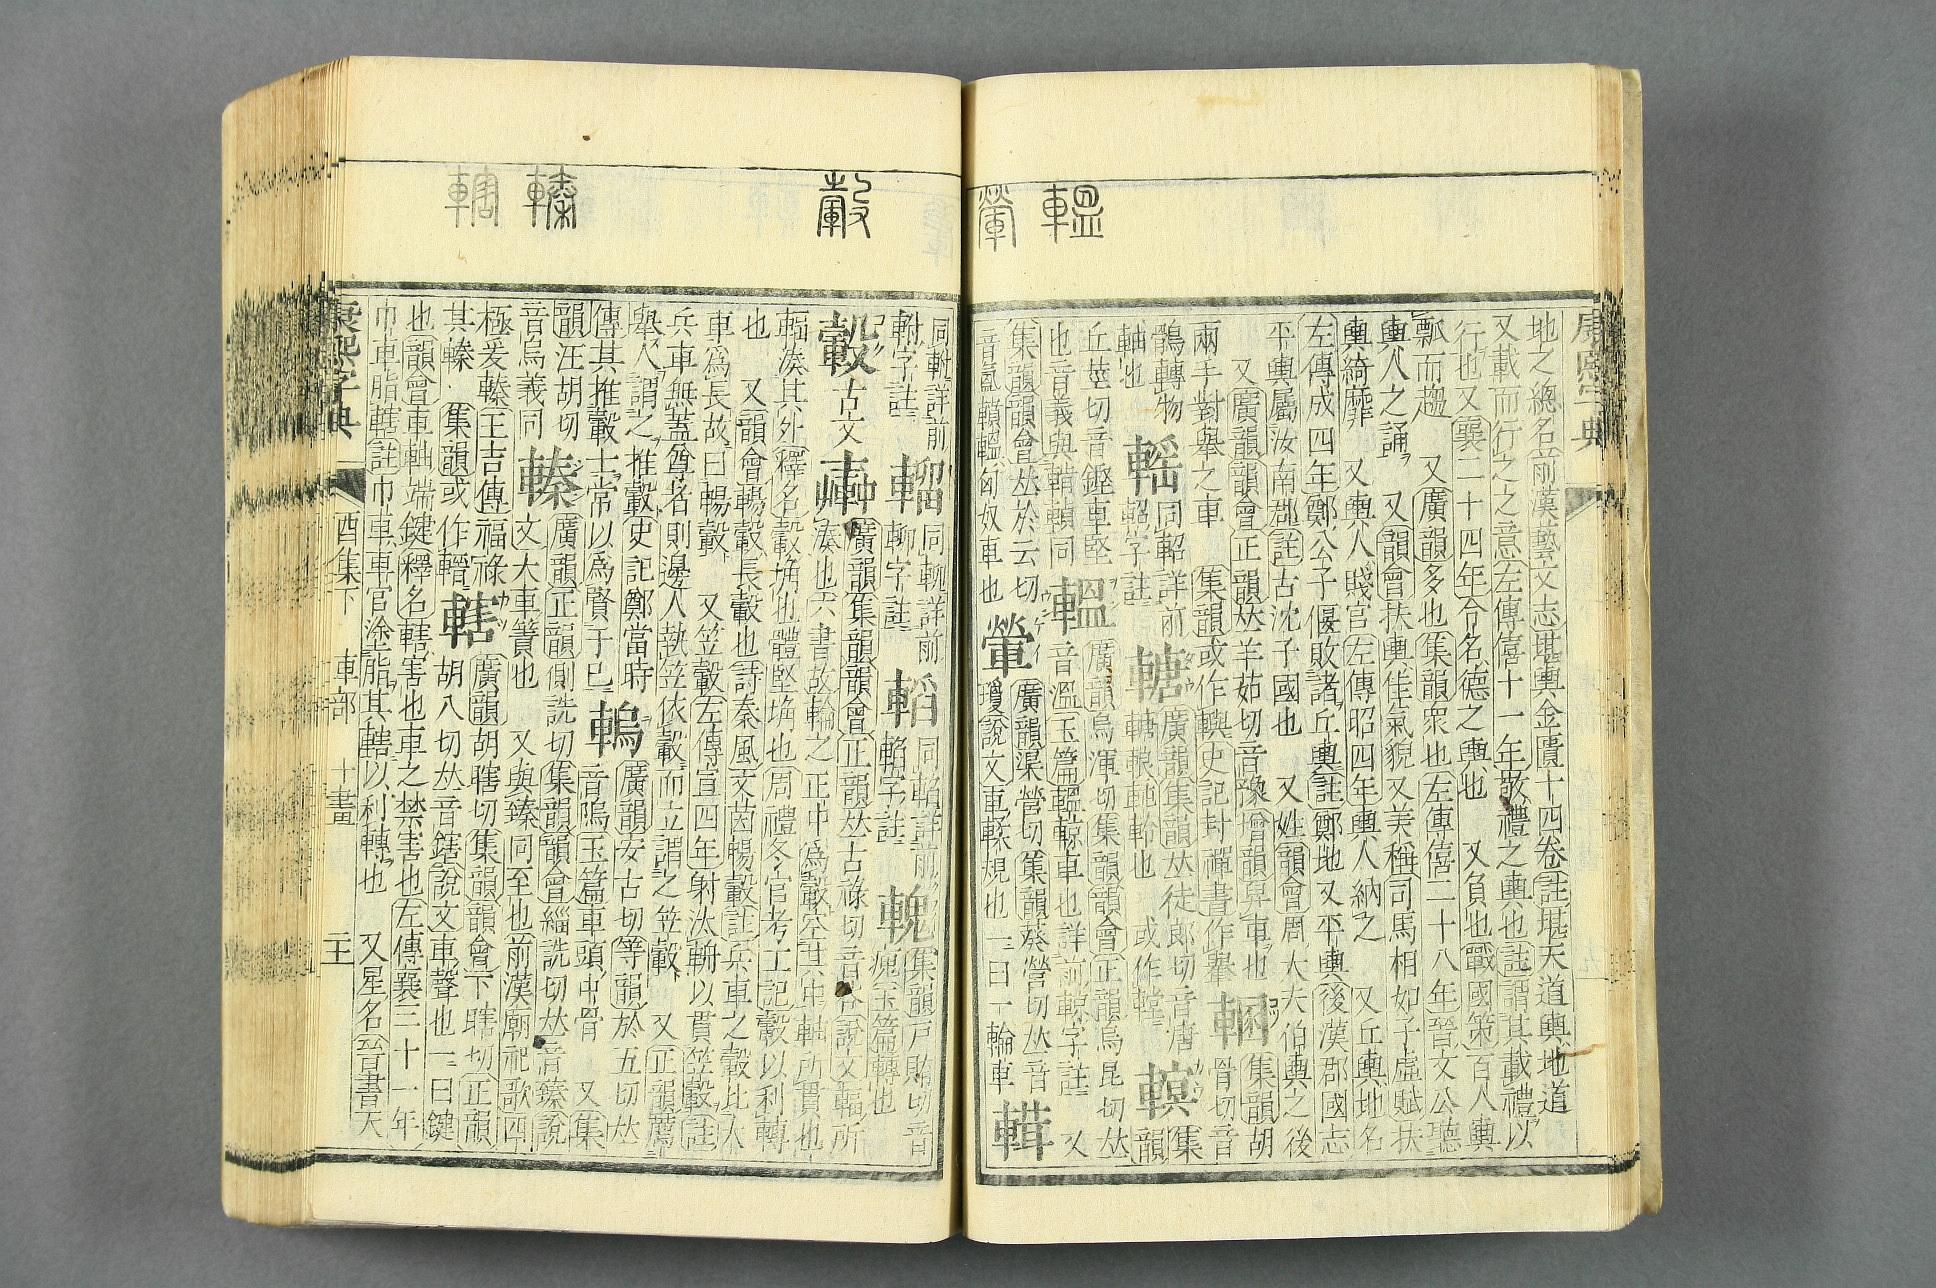 地之總名前漢藝文志堪輿金匱十四卷註堪天道輿地道
又載而行之之意左傳僖十一年敬禮之輿也註謂其載禮以
行也又襄二十四年令名德之輿也 又負也戰國策百人輿
瓢而趨 又廣韻多也集韻衆也左傳僖二十八年晉文公聽
輿人之誦 又韻會扶輿佳氣貌又美稱司馬相如子虛賦扶
輿綺靡 又輿人賤官左傳昭四年輿人納之 又丘輿地名
左傳成四年鄭公子偃敗諸丘輿註鄭地又平輿後漢郡國志
平輿屬汝南郡註古沈子國也 又姓韻會周大夫伯輿之後
又廣韻韻會正韻𠀤羊茹切音豫增韻舁車也 集韻胡
兩手對舉之車 集韻或作轝史記封禪書作舉 骨切音
鶻轉物 同軺詳前 廣韻集韻𠀤徒郎切音唐 集
軸也 軺字註 軨也 或作 韻
丘莖切音鏗車堅 轀 廣韻烏渾切集韻韻會正韻烏昆切𠀤
也音義與 同 音溫玉篇轀輬車也詳前輬字註 又
集韻韻會𠀤於云切 廣韻渠營切集韻葵營切𠀤音
音氳轒轀匈奴車也 瓊說文車輮規也一曰一輪車
轀
康熙字典
同軵詳前 同 詳前 同 詳前 集韻戸賄切音
軵字註 字註 字註 瘣玉篇轉也
轂 古文 廣韻集韻韻會正韻𠀤古祿切音谷說文輻所
湊也六書故輪之正中爲轂空其中軸所貫也
輻湊其外釋名轂埆也體堅埆也周禮冬官考工記轂以利轉
也 又韻會暢轂長轂也詩秦風文茵暢轂註兵車之轂比大
車爲長故曰暢轂 又笠轂左傳宣四年射汰輈以貫笠轂註
兵車無蓋尊者則邊人執笠依轂而立謂之笠轂 又正韻薦
舉人謂之推轂史記鄭當時 廣韻安古切等韻於五切𠀤
傳其推轂士常以爲賢于已 音隖玉篇車頭中骨 又集
韻汪胡切 轃 廣韻正韻側詵切集韻韻會緇詵切𠀤音臻說
音烏義同 文大車簀也 又與臻同至也前漢廟祀歌四
極爰轃王吉傳福祿 轄 廣韻胡瞎切集韻韻會下瞎切正韻
其轃 集韻或作 胡八切𠀤音鎋說文車聲也一曰鍵
也韻會車軸端鍵釋名轄害也車之禁害也左傳襄三十一年
巾車脂轄註巾車車官塗脂其轄以利轉也 又星名晉書天
轂 轃 轄
康熙字典 酉集下 車部 十畫